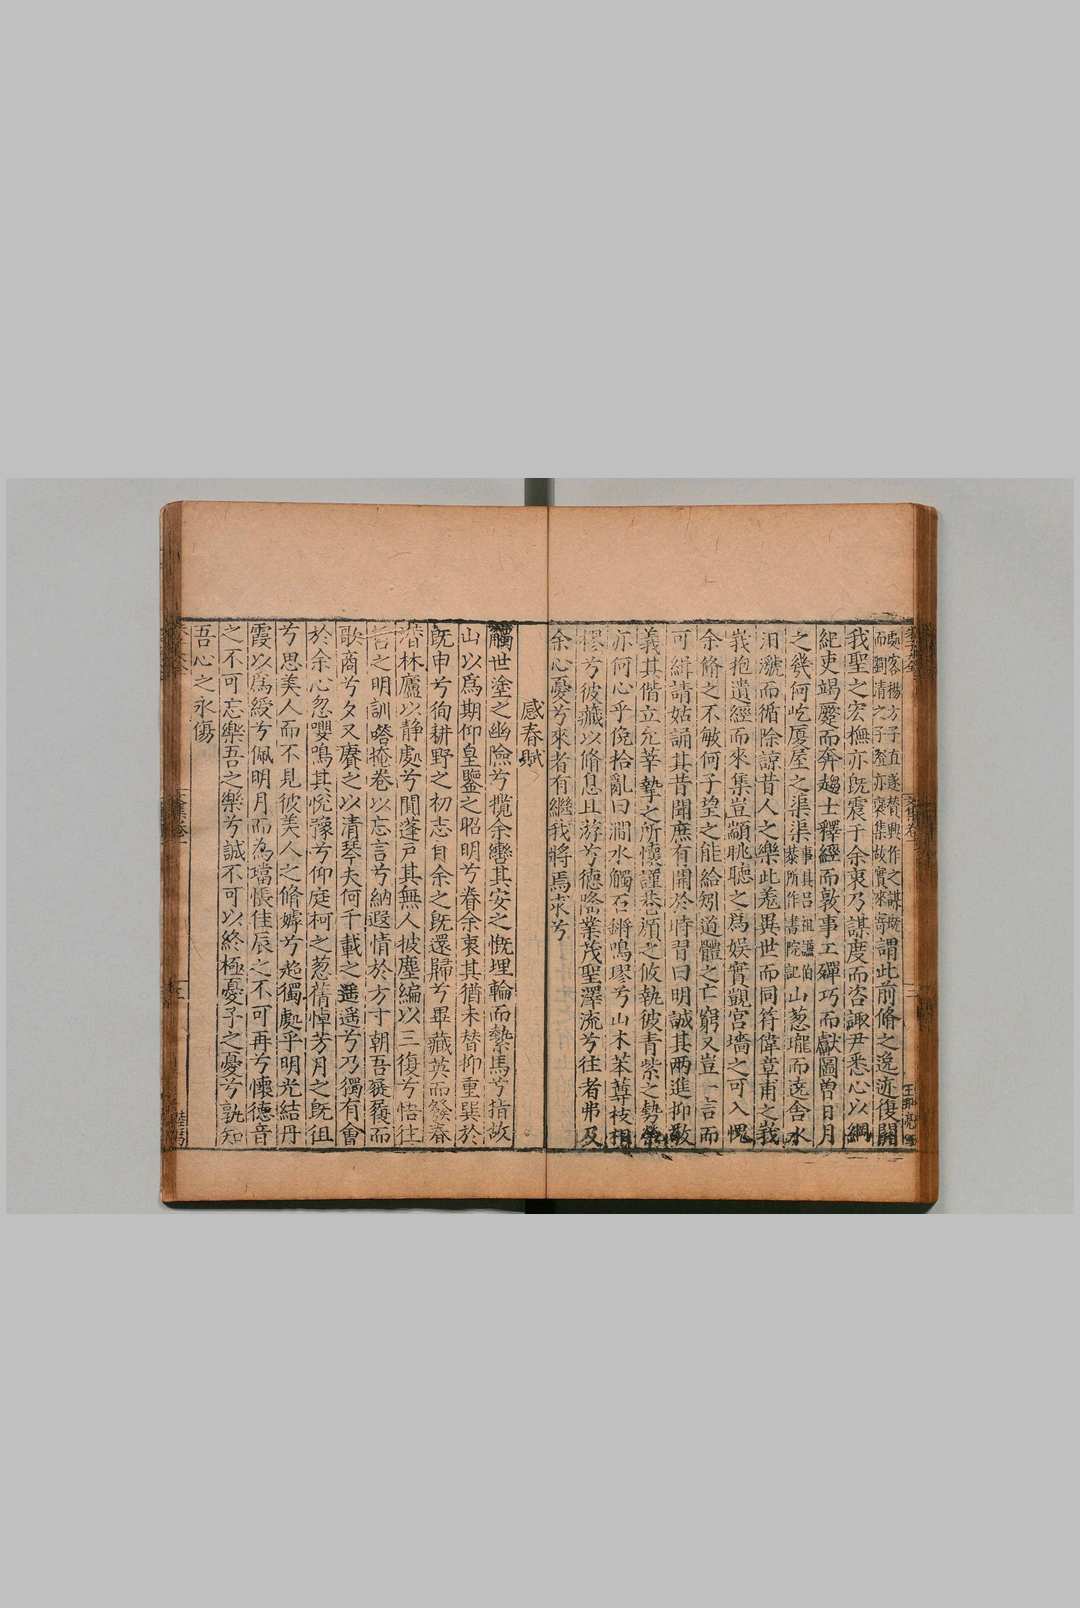 處客楊方子直遂贊興作之謀既
而劉清之子澄亦裒集故實來寄謂此前脩之逸迹復關
我聖之宏撫亦既震于余衷乃謀度而咨諏尹悉心以綱
紀吏竭蹷而奔趨士釋經而敦事工殫巧而獻圖曾日月
之幾何屹廈屋之渠渠事具呂祖謙伯恭所作書院記山葱瓏而遶舍水
汨㶁而循除諒昔人之樂此羌異世而同符偉章甫之峩
峩抱遺經而來集豈顓眺聽之爲娱實覬宮墻之可入愧
余脩之不敏何子望之能給矧道體之亡窮又豈一言而
可緝請姑誦其昔聞庶有開於時習曰明誠其兩進抑敬
義其偕立允莘摯之所懷謹巷顔之攸執彼青紫之勢榮
亦何心乎俛拾亂曰澗水觸石鏘鳴璆兮山木苯䔿枝相
樛兮彼藏以脩息且游兮德崇業茂聖澤流兮往者弗及
余心憂兮來者有繼我將焉求兮
感春賦
觸世塗之幽險兮攬余轡其安之慨埋輪而縶馬兮指故
山以爲期仰皇鑒之昭明兮眷余衷其猶未替抑重巽於
既申兮徇耕野之初志自余之既還歸兮畢藏英而發春
潛林廬以静處兮闃蓬戸其無人披塵編以三復兮悟往
哲之明訓嗒掩卷以忘言兮納遐情於方寸朝吾屣履而
歌商兮夕又賡之以清琴夫何千載之遥遥兮乃獨有會
於余心忽嚶鳴其悅豫兮仰庭柯之葱蒨悼芳月之既徂
兮思美人而不見彼美人之脩嫭兮超獨處乎明光結丹
霞以爲綬兮佩明月而為璫悵佳辰之不可再兮懷德音
之不可忘樂吾之樂兮誠不可以終極憂子之憂兮孰知
吾心之永傷